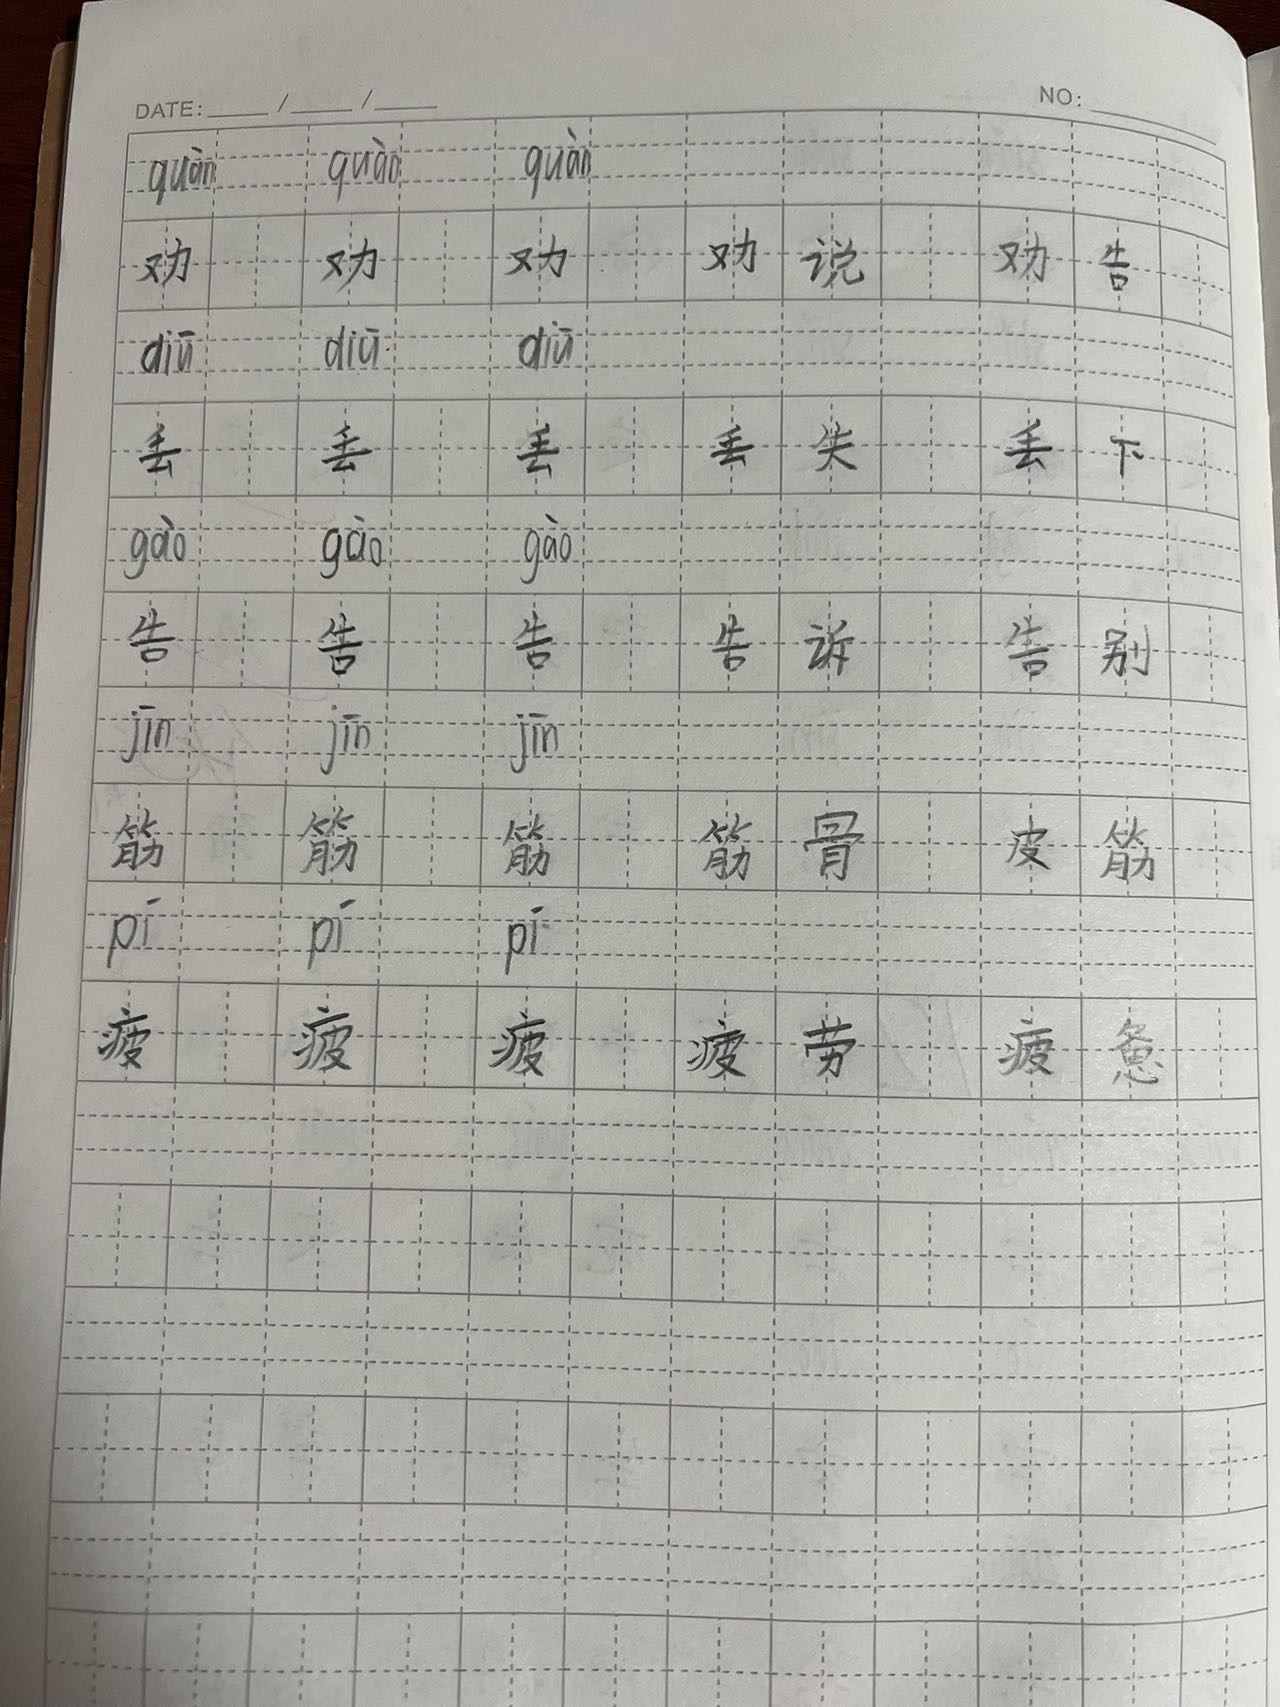 DATE: ____ / ____ / ____ NO: ________
quàn quàn quàn
劝 劝 劝 劝说 劝告
diū diū diū
丢 丢 丢 丢失 丢下
gào gào gào
告 告 告 告诉 告别
jīn jīn jīn
筋 筋 筋 筋骨 皮筋
pí pí pí
疲 疲 疲 疲劳 疲惫